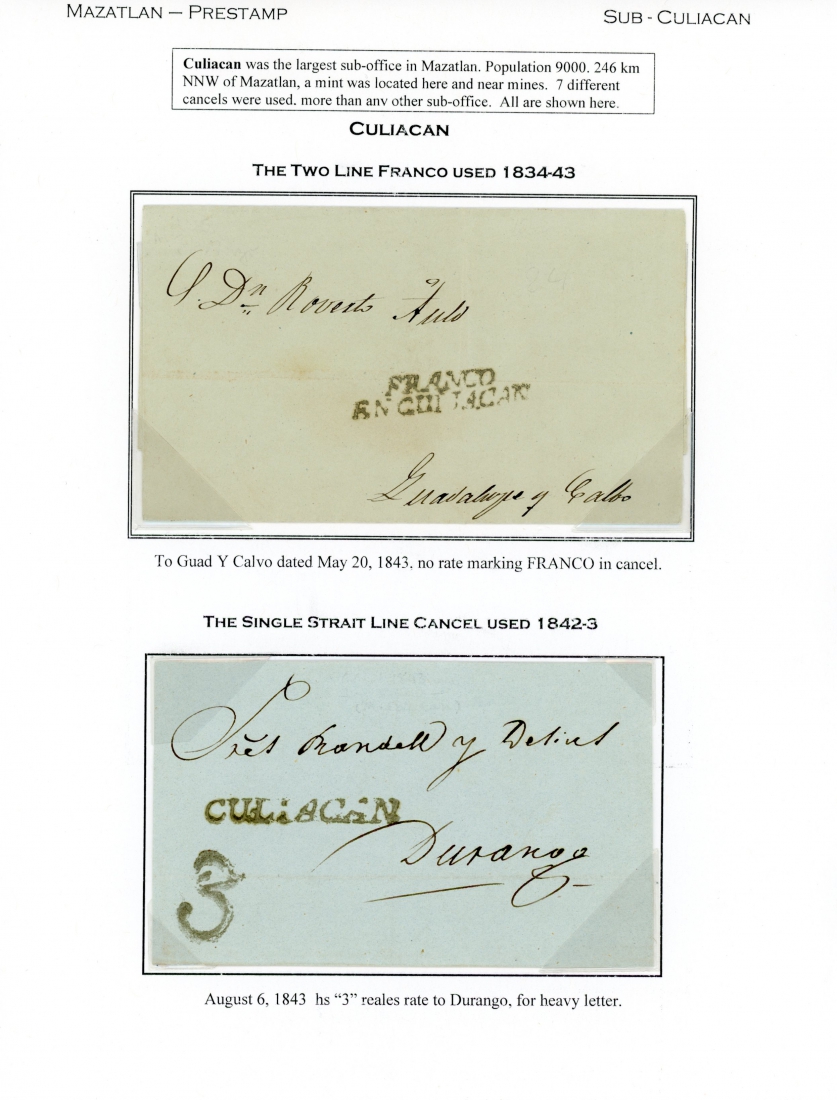 MAZATLAN – PRESTAMP
SUB - CULIACAN
Culiacan was the largest sub-office in Mazatlan. Population 9000. 246 km
NNW of Mazatlan, a mint was located here and near mines. 7 different
cancels were used, more than any other sub-office. All are shown here.
CULIACAN
THE TWO LINE FRANCO USED 1834-43
S. Dn Roverto Auld
FRANCO
EN CULIACAN
Guadalupe y Calbo
To Guad Y Calvo dated May 20, 1843, no rate marking FRANCO in cancel.
THE SINGLE STRAIT LINE CANCEL USED 1842-3
Sres Randell y Delius
CULiACAN
Durango
3
August 6, 1843 hs “3” reales rate to Durango, for heavy letter.